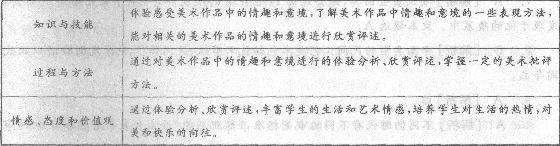 知识与技能
体验感受美术作品中的情趣和意境,了解美术作品中情趣和意境的一些表现方法,
能对相关的美术作品的情趣和意境进行欣赏评述。
过程与方法
通过对美术作品中的情趣和意境进行的体验分析、欣赏评述,掌握一定的美术批评
方法。
情感、态度和价值观
通过体验分析、欣赏评述,丰富学生的生活和艺术情感,培养学生对生活的热情,对
美和快乐的向往。